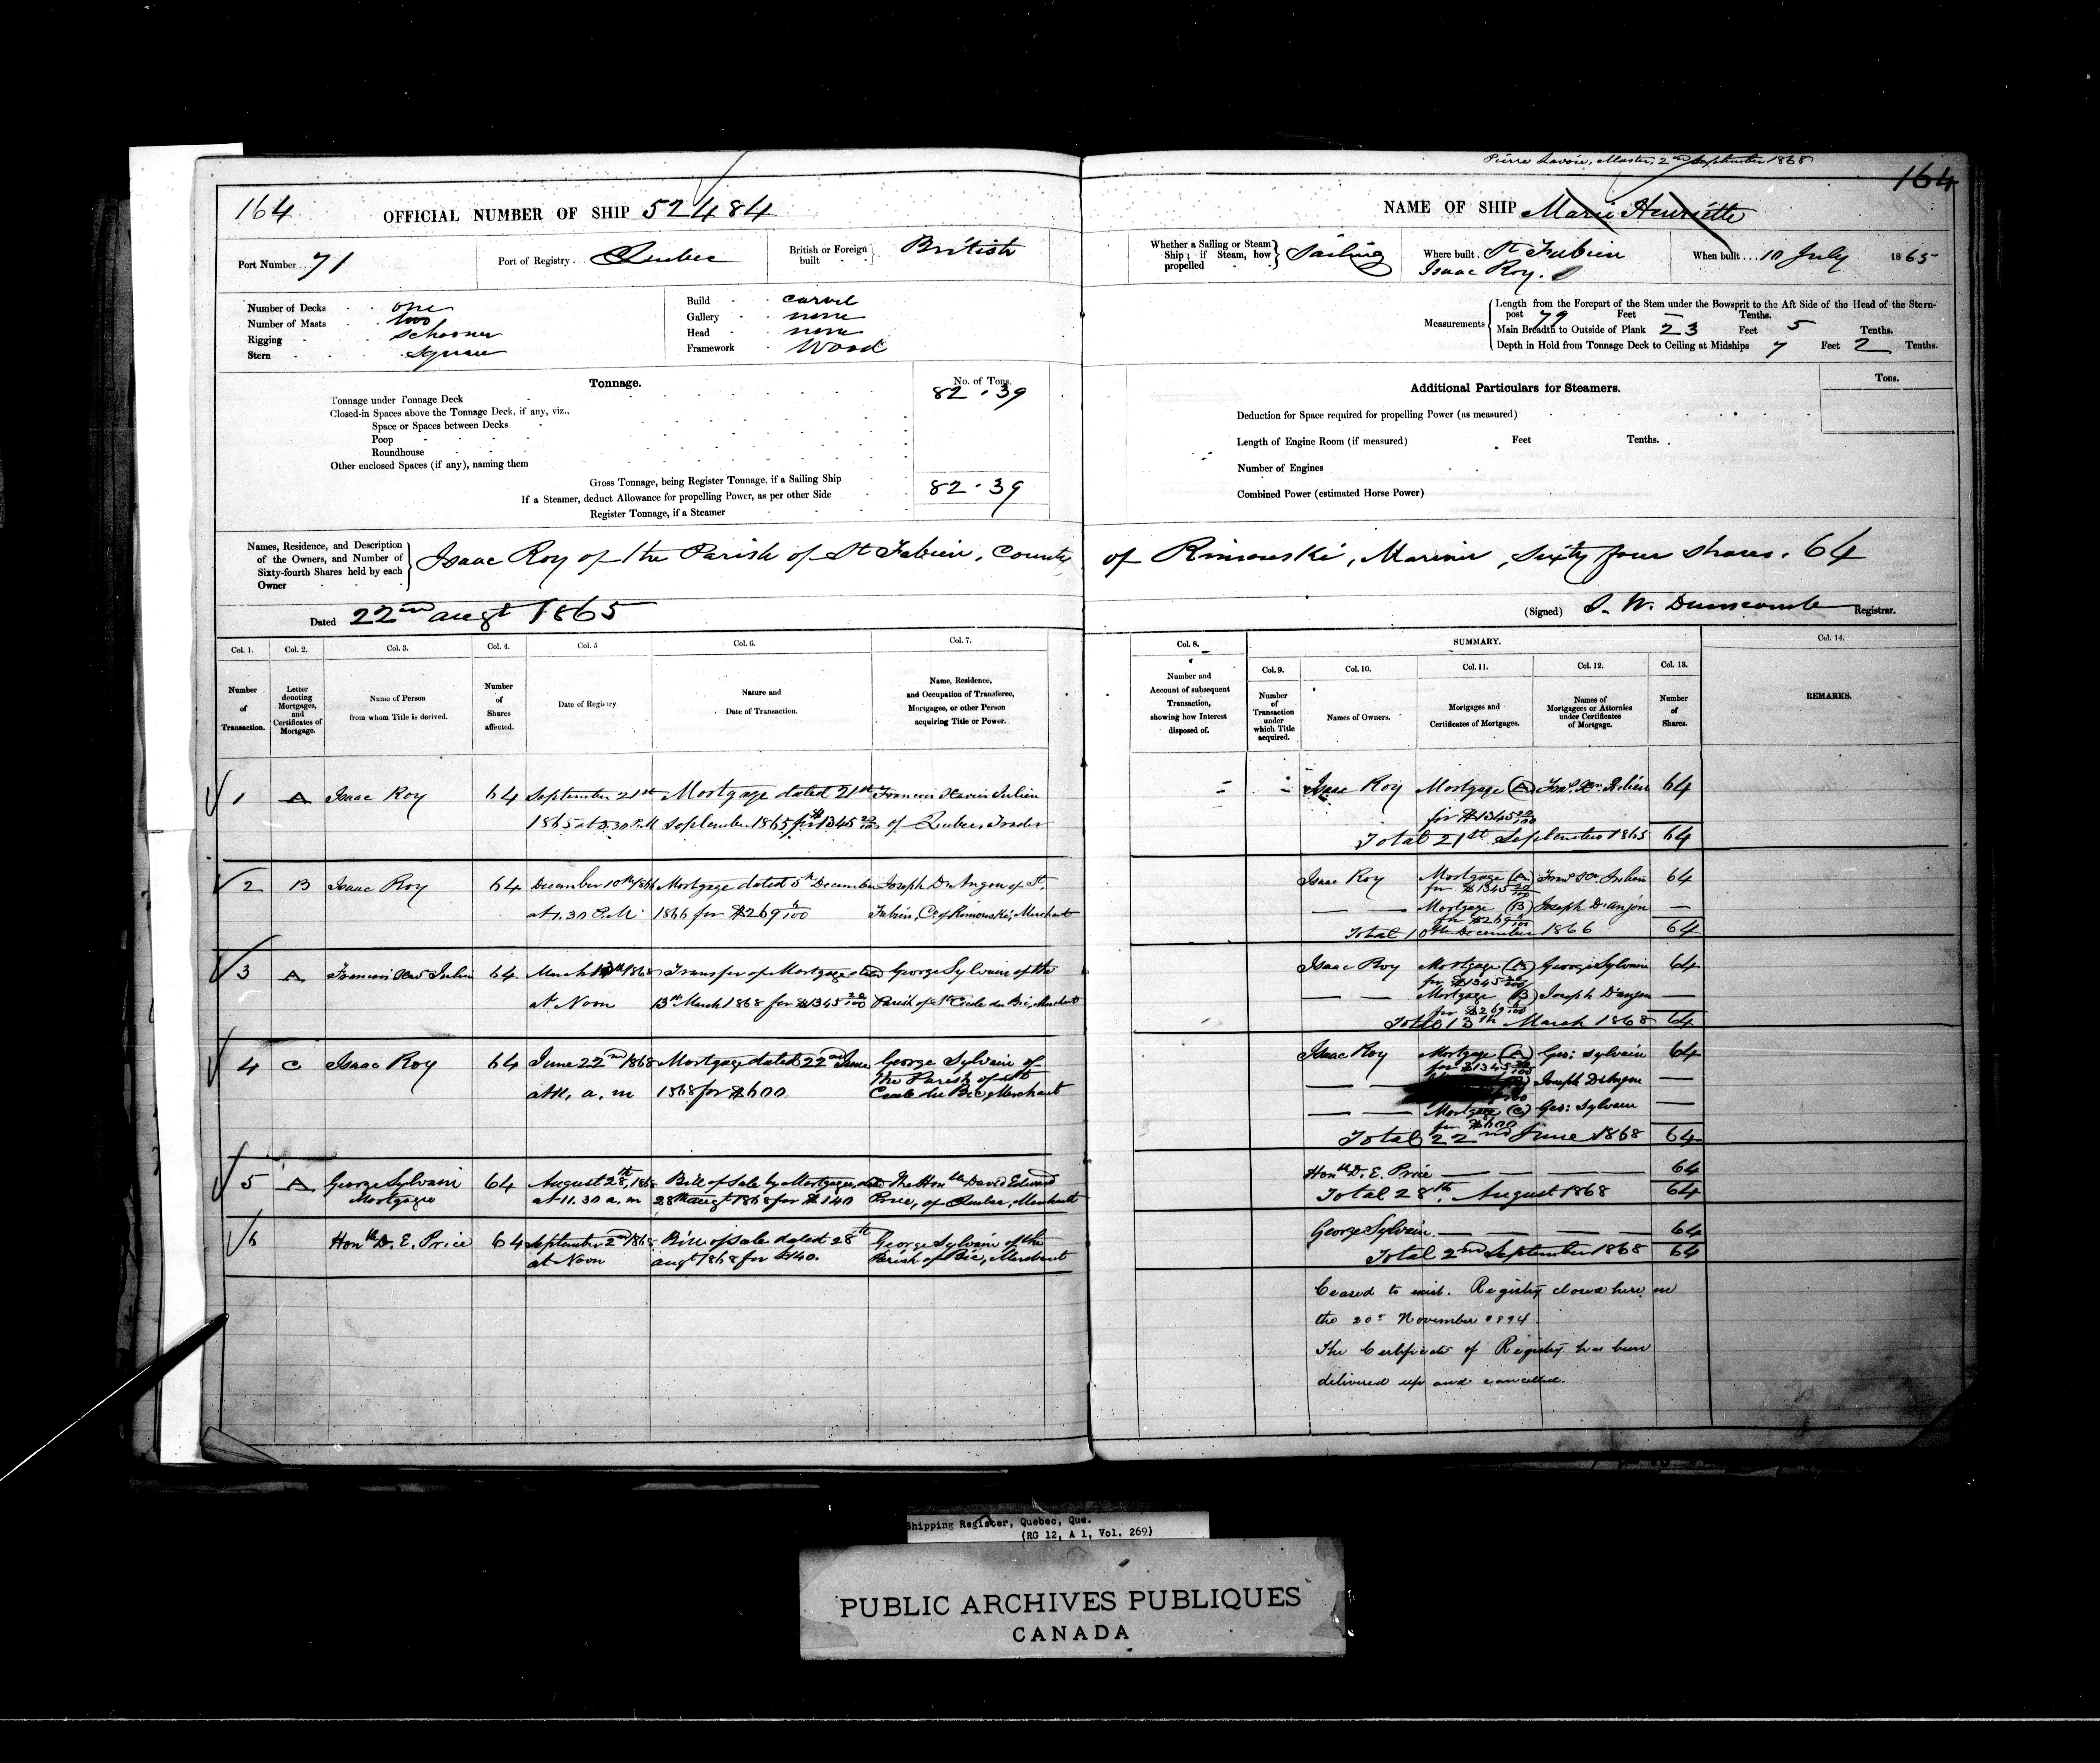 Pierre Lavoie, Master, 2nd September 1868
164
164
OFFICIAL NUMBER OF SHIP 52484
NAME OF SHIP Marie Henriette
Port Number 71
Port of Registry Quebec
British or Foreign built British
Whether a Sailing or Steam Ship; if Steam, how propelled Sailing
Where built St Fabien
Isaac Roy.
When built 10 July 1865
Number of Decks one
Number of Masts two
Rigging Schooner
Stern Square
Build carvel
Gallery none
Head none
Framework Wood
Measurements
Length from the Forepart of the Stem under the Bowsprit to the Aft Side of the Head of the Stern-
post 79 Feet — Tenths.
Main Breadth to Outside of Plank 23 Feet 5 Tenths.
Depth in Hold from Tonnage Deck to Ceiling at Midships 7 Feet 2 Tenths.
Tonnage.
No. of Tons.
Tonnage under Tonnage Deck 82.39
Closed-in Spaces above the Tonnage Deck, if any, viz.,
Space or Spaces between Decks
Poop
Roundhouse
Other enclosed Spaces (if any), naming them
Gross Tonnage, being Register Tonnage, if a Sailing Ship 82.39
If a Steamer, deduct Allowance for propelling Power, as per other Side
Register Tonnage, if a Steamer
Additional Particulars for Steamers.
Tons.
Deduction for Space required for propelling Power (as measured)
Length of Engine Room (if measured) Feet Tenths.
Number of Engines
Combined Power (estimated Horse Power)
Names, Residence, and Description
of the Owners, and Number of
Sixty-fourth Shares held by each
Owner
Isaac Roy of the Parish of St Fabien, County of Rimouski, Mariner, Sixty four shares. 64
Dated 22nd augt 1865
(Signed) J. W. Dunscomb Registrar.
Col. 1. Col. 2. Col. 3. Col. 4. Col. 5 Col. 6. Col. 7.
Number of Transaction.
Letter denoting Mortgages, and Certificates of Mortgage.
Name of Person from whom Title is derived.
Number of Shares affected.
Date of Registry
Nature and Date of Transaction.
Name, Residence, and Occupation of Transferee, Mortgagee, or other Person acquiring Title or Power.
Col. 8.
Number and Account of subsequent Transaction, showing how Interest disposed of.
SUMMARY.
Col. 9. Col. 10. Col. 11. Col. 12. Col. 13. Col. 14.
Number of Transaction under which Title acquired.
Names of Owners.
Mortgages and Certificates of Mortgages.
Names of Mortgagees or Attornies under Certificates of Mortgage.
Number of Shares.
REMARKS.
1 A Isaac Roy 64 September 21st Mortgage dated 21st Francois Xavier Julien
1865 at 3.30 P.M September 1865 for $1345 20/100 of Quebec Trader
Isaac Roy Mortgage (A) Frs. Xr. Julien 64
for $1345 20/100
Total 21st September 1865 64
2 B Isaac Roy 64 December 10th 1866 Mortgage dated 5th December Joseph D'Anjou of St.
at 1.30 P.M. 1866 for $269 Fabien, Co of Rimouski, Merchant
Isaac Roy Mortgage (A) Frs Xr. Julien 64
for $1345 20/100
— — Mortgage (B) Joseph D'Anjou —
for $269
Total 10th December 1866 64
3 A Francois Xavr Julien 64 March 13th 1868 Transfer of Mortgage dated George Sylvain of the
at Noon 13th March 1868 for $1345 20/100 Parish of St Cecile du Bic, Merchant
Isaac Roy Mortgage (A) George Sylvain 64
for $1345 20/100
— — Mortgage (B) Joseph D'anjou —
for $269
Total 13th March 1868 64
4 C Isaac Roy 64 June 22nd 1868 Mortgage dated 22nd June George Sylvain of
the Parish of St
at 11. a. m 1868 for $600 Cecile du Bic, Merchant
Isaac Roy Mortgage (A) Geo: Sylvain 64
for $1345 20/100
— — Joseph D'Anjou —
— — Mortgage (C) Geo: Sylvain —
for $600
Total 22nd June 1868 64
5 A George Sylvain 64 August 28th, 1868 Bill of Sale by Mortgagee, dated The Honble David Edward
Mortgagee at 11.30 a. m 28th augt 1868 for $140 Price, of Quebec, Merchant
Honble D. E. Price — — — 64
Total 28th. August 1868 64
6 Honble D. E. Price 64 September 2nd 1868 Bill of Sale dated 28th George Sylvain of the
at Noon augt 1868 for $140. Parish of Bic, Merchant
George Sylvain — — — — 64
Total 2nd September 1868 64
Ceased to exist. Registry closed here on
the 20th November 1894
The Certificate of Registry has been
delivered up and cancelled.
Shipping Register, Quebec, Que.
(RG 12, A 1, Vol. 269)
PUBLIC ARCHIVES PUBLIQUES
CANADA